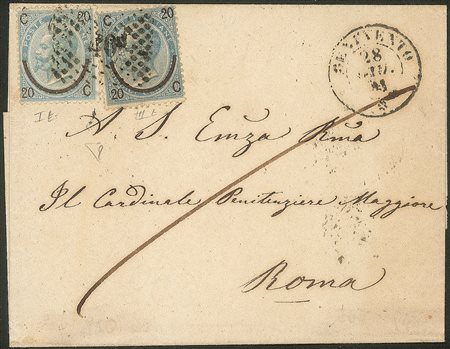 C 20 20 C
POSTE
20 C 20 C
BENEVENTO
28
I E.
III E.
A S. Emza Rma
Il Cardinale Penitenziere Maggiore
Roma